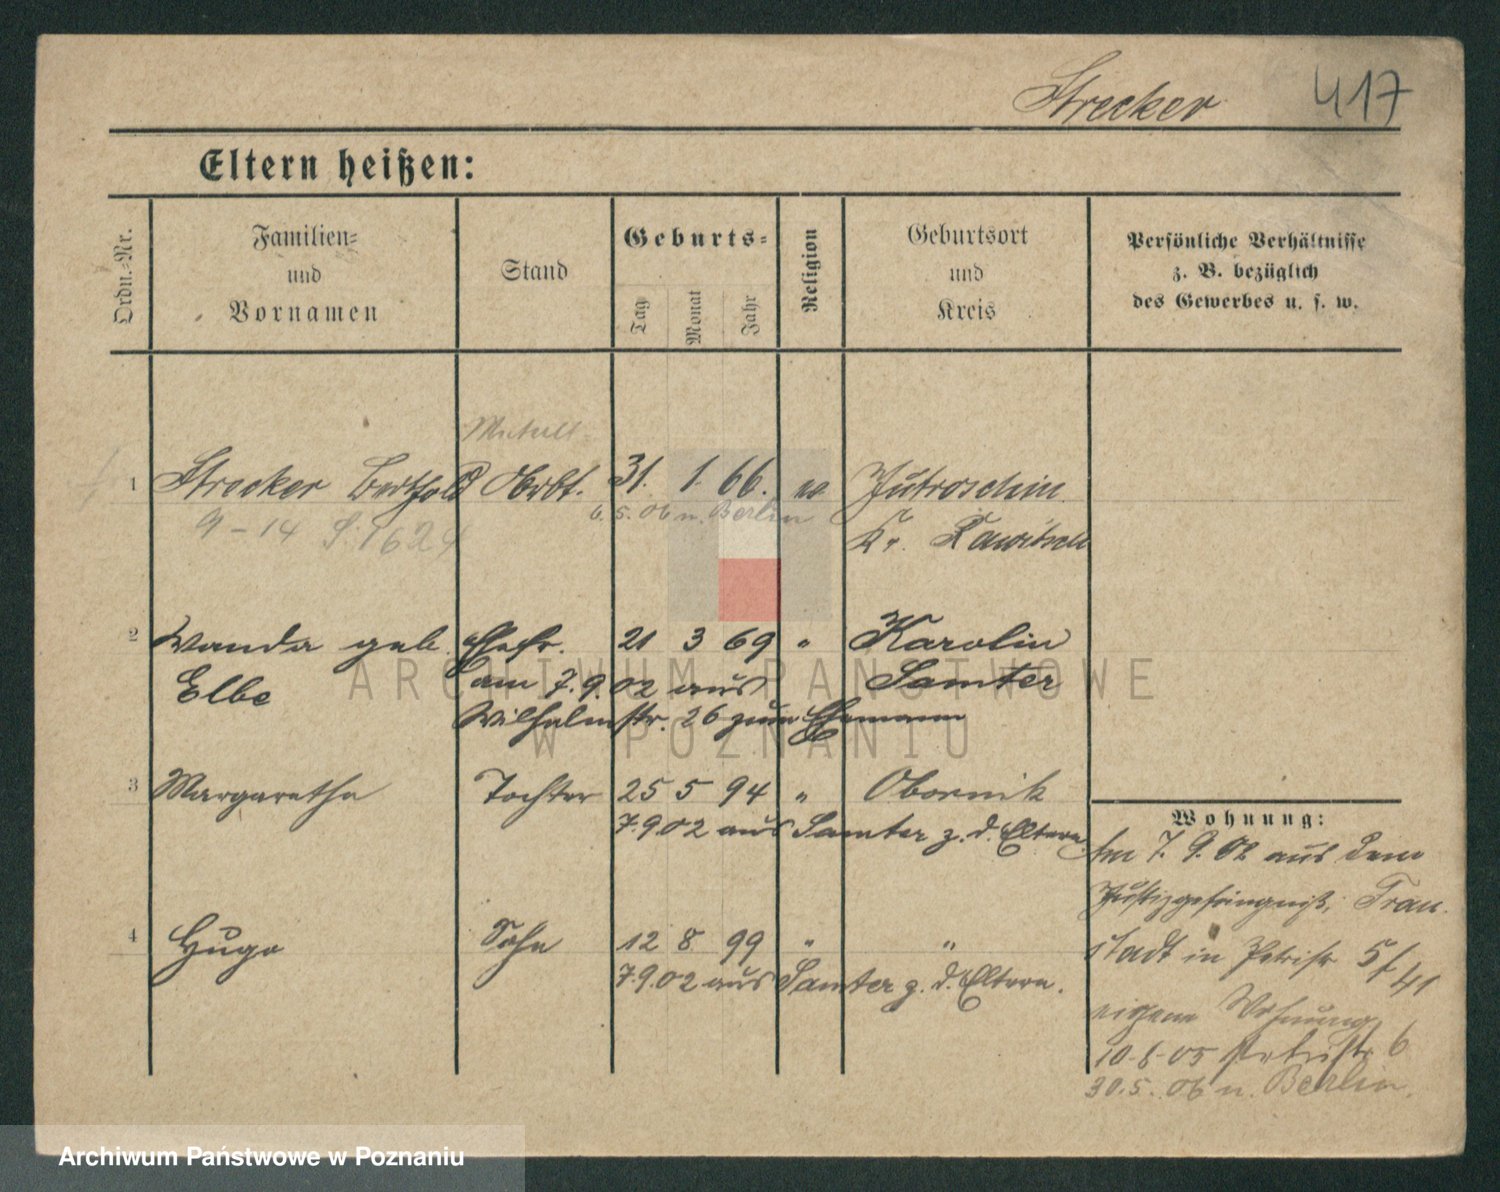 Strecker 417
Eltern heißen:
Ordn.-Nr.
Familien-
und
Vornamen
Stand
Geburts-
Tag
Monat
Jahr
Religion
Geburtsort
und
Kreis
Persönliche Verhältnisse
z. B. bezüglich
des Gewerbes u. s. w.
1 Strecker Berthold 31. 1. 66. Jutroschin
6. 5. 06 n. Berlin
9-14 S. 1624
Kr. Rawitsch
2 Wanda geb. Ehefr. 21 3 69 " Karolin
Elbe am 7.9.02 aus Samter
Wilhelmstr. 26 zum Ehemann
3 Margarethe Tochter 25 5 94 " Obornik
7.9.02 aus Samter z. d. Eltern
4 Hugo Sohn 12 8 99 " "
7.9.02 aus Samter z. d. Eltern.
Wohnung:
Am 7. 9. 02 aus dem
Justizgefängniß, Frau
stadt in Petristr 5 / 41
eigene Wohnung
Petristr 6
30.5. 06 n. Berlin.
ARCHIWUM PAŃSTWOWE
W POZNANIU
Archiwum Państwowe w Poznaniu